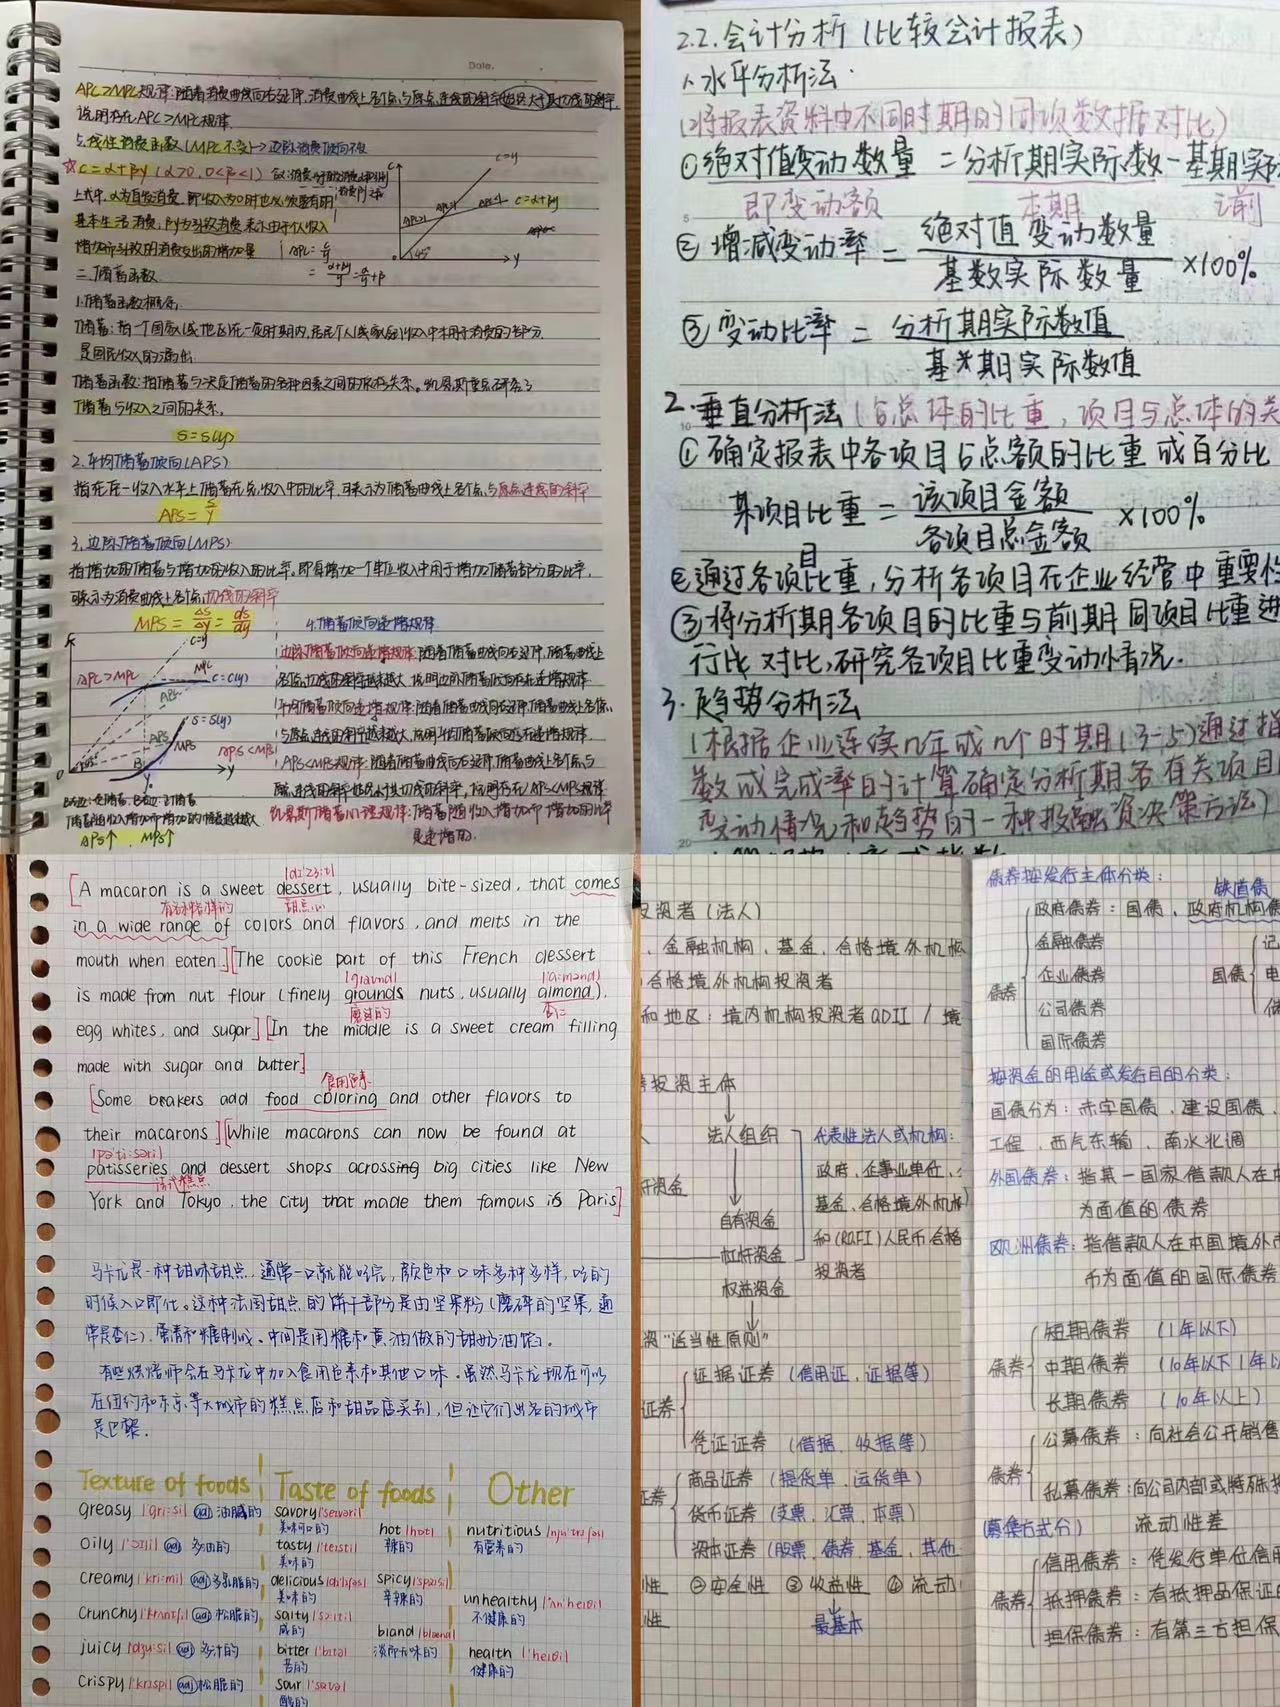 Date.
APC>MPC规律:随着消费曲线向右延伸,消费曲线上各个点与原点连线的斜率始终大于其切线的斜率,
说明存在APC>MPC规律.
5.线性消费函数(MPC不变)→边际消费倾向不变
☆C=α+βy(α>0,0<β<1)
c=y
c=α+βy
上式中,α为自发消费,即收入为0时也必须要有的
基本生活消费,βy为引致消费,表示由于收入
增加而引致的消费支出的增加量
APC=c/y
=(α+βy)/y=α/y+β
45°
y
二.储蓄函数
1.储蓄函数概念.
储蓄:指一个国家(或地区)在一定时期内,居民个人或家庭收入中未用于消费的部分.
是国民收入的漏出.
储蓄函数:指储蓄与决定储蓄的各种因素之间的依存关系。凯恩斯重点研究了
储蓄与收入之间的关系.
S=S(y)
2.平均储蓄倾向(APS)
指在任一收入水平上储蓄在总收入中的比率,可表示为储蓄曲线上各个点与原点连线的斜率
APS=S/y
3.边际储蓄倾向(MPS)
指增加的储蓄与增加的收入的比率.即每增加一个单位收入中用于增加储蓄部分的比率,
可表示为消费曲线上各个点切线的斜率
MPS=ΔS/Δy=ds/dy
4.储蓄倾向递增规律
边际储蓄倾向递增规律:随着储蓄曲线向右延伸,储蓄曲线上
各个点切线的斜率越来越大,说明边际储蓄倾向存在递增规律
平均储蓄倾向递增规律:随着储蓄曲线向右延伸,储蓄曲线上各个点
与原点连线的斜率越来越大,说明平均储蓄倾向存在递增规律.
APS<MPS规律:随着储蓄曲线向右延伸储蓄曲线上各个点与
原点连线的斜率始终小于切线的斜率,说明存在APS<MPS规律
凯恩斯储蓄心理规律:储蓄随收入增加而增加的比率
是递增的.
c=y
APC>MPC
MPC
C=C(y)
APC
S=S(y)
APS
MPS
APS<MPS
45°
B
y
APS↑ MPS↑
2.2.会计分析(比较会计报表)
1.水平分析法.
(将报表资料中不同时期的同项数据对比)
①绝对值变动数量=分析期实际数-基期实际
即变动额 本期 之前
②增减变动率=绝对值变动数量/基数实际数量×100%
③变动比率=分析期实际数值/基期实际数值
2.垂直分析法(占总体的比重,项目与总体的关
①确定报表中各项目占总额的比重或百分比
某项目比重=该项目金额/各项目总金额×100%
②通过各项目比重,分析各项目在企业经营中重要性
③将分析期各项目的比重与前期同项目比重进
行比对比,研究各项目比重变动情况.
3.趋势分析法
(根据企业连续n年或n个时期(3-5)通过指
数或完成率的计算确定分析期各有关项目
变动情况和趋势的一种投融资决策方法)
[A macaron is a sweet dessert, usually bite-sized, that comes
有各种各样的 甜点心
in a wide range of colors and flavors, and melts in the
mouth when eaten.][The cookie part of this French dessert
is made from nut flour (finely grounds nuts, usually almond),
磨过的 杏仁
egg whites, and sugar][In the middle is a sweet cream filling
made with sugar and butter]
食用色素
[Some brakers add food coloring and other flavors to
their macarons][While macarons can now be found at
patisseries and dessert shops acrossing big cities like New
法式糕点
York and Tokyo, the city that made them famous is Paris]
马卡龙是一种甜味甜点,通常一口就能吃完,颜色和口味多种多样,吃的
时候入口即化。这种法国甜点的饼干部分是由坚果粉(磨碎的坚果,通
常是杏仁),蛋清和糖制成。中间是用糖和黄油做的甜奶油馅。
有些烘焙师会在马卡龙中加入食用色素和其他口味。虽然马卡龙现在可以
在纽约和东京等大城市的糕点店和甜品店买到,但让它们出名的城市
是巴黎.
Texture of foods Taste of foods Other
greasy adj 油腻的
oily adj 多油的
creamy adj 多乳脂的
crunchy adj 松脆的
juicy adj 多汁的
crispy adj 松脆的
savory
美味可口的
tasty
美味的
delicious
美味的
salty
咸的
bitter
苦的
sour
酸的
hot
辣的
spicy
辛辣的
bland
淡而无味的
nutritious
有营养的
unhealthy
不健康的
health
健康的
投资者(法人)
、金融机构、基金、合格境外机构
合格境外机构投资者
和地区:境内机构投资者QDII/境
投资主体
法人组织
自有资金
杠杆资金
权益资金
代表性法人或机构:
政府、企事业单位、
基金、合格境外机构
和(RQFI)人民币合格
投资者
资"适当性原则"
证券
证据证券(信用证、证据等)
凭证证券(借据、收据等)
证券
商品证券(提货单、运货单)
货币证券(支票、汇票、本票)
资本证券(股票、债券、基金、其他
性 ②安全性 ③收益性 ④流动
性 最基本
债券按发行主体分类:
铁道债
债券
政府债券:国债、政府机构债
金融债券
企业债券
公司债券
国际债券
国债
记
电
储
按资金的用途或发行目的分类:
国债分为:赤字国债、建设国债、
工程、西气东输、南水北调
外国债券:指某一国家借款人在本
为面值的债券
欧洲债券:指借款人在本国境外市
币为面值的国际债券
债券
短期债券(1年以下)
中期债券(10年以下1年以
长期债券(10年以上)
债券
公募债券:向社会公开销售
私募债券:向公司内部或特殊投
(募集方式分) 流动性差
债券
信用债券:凭发行单位信用
抵押债券:有抵押品保证的
担保债券:有第三方担保